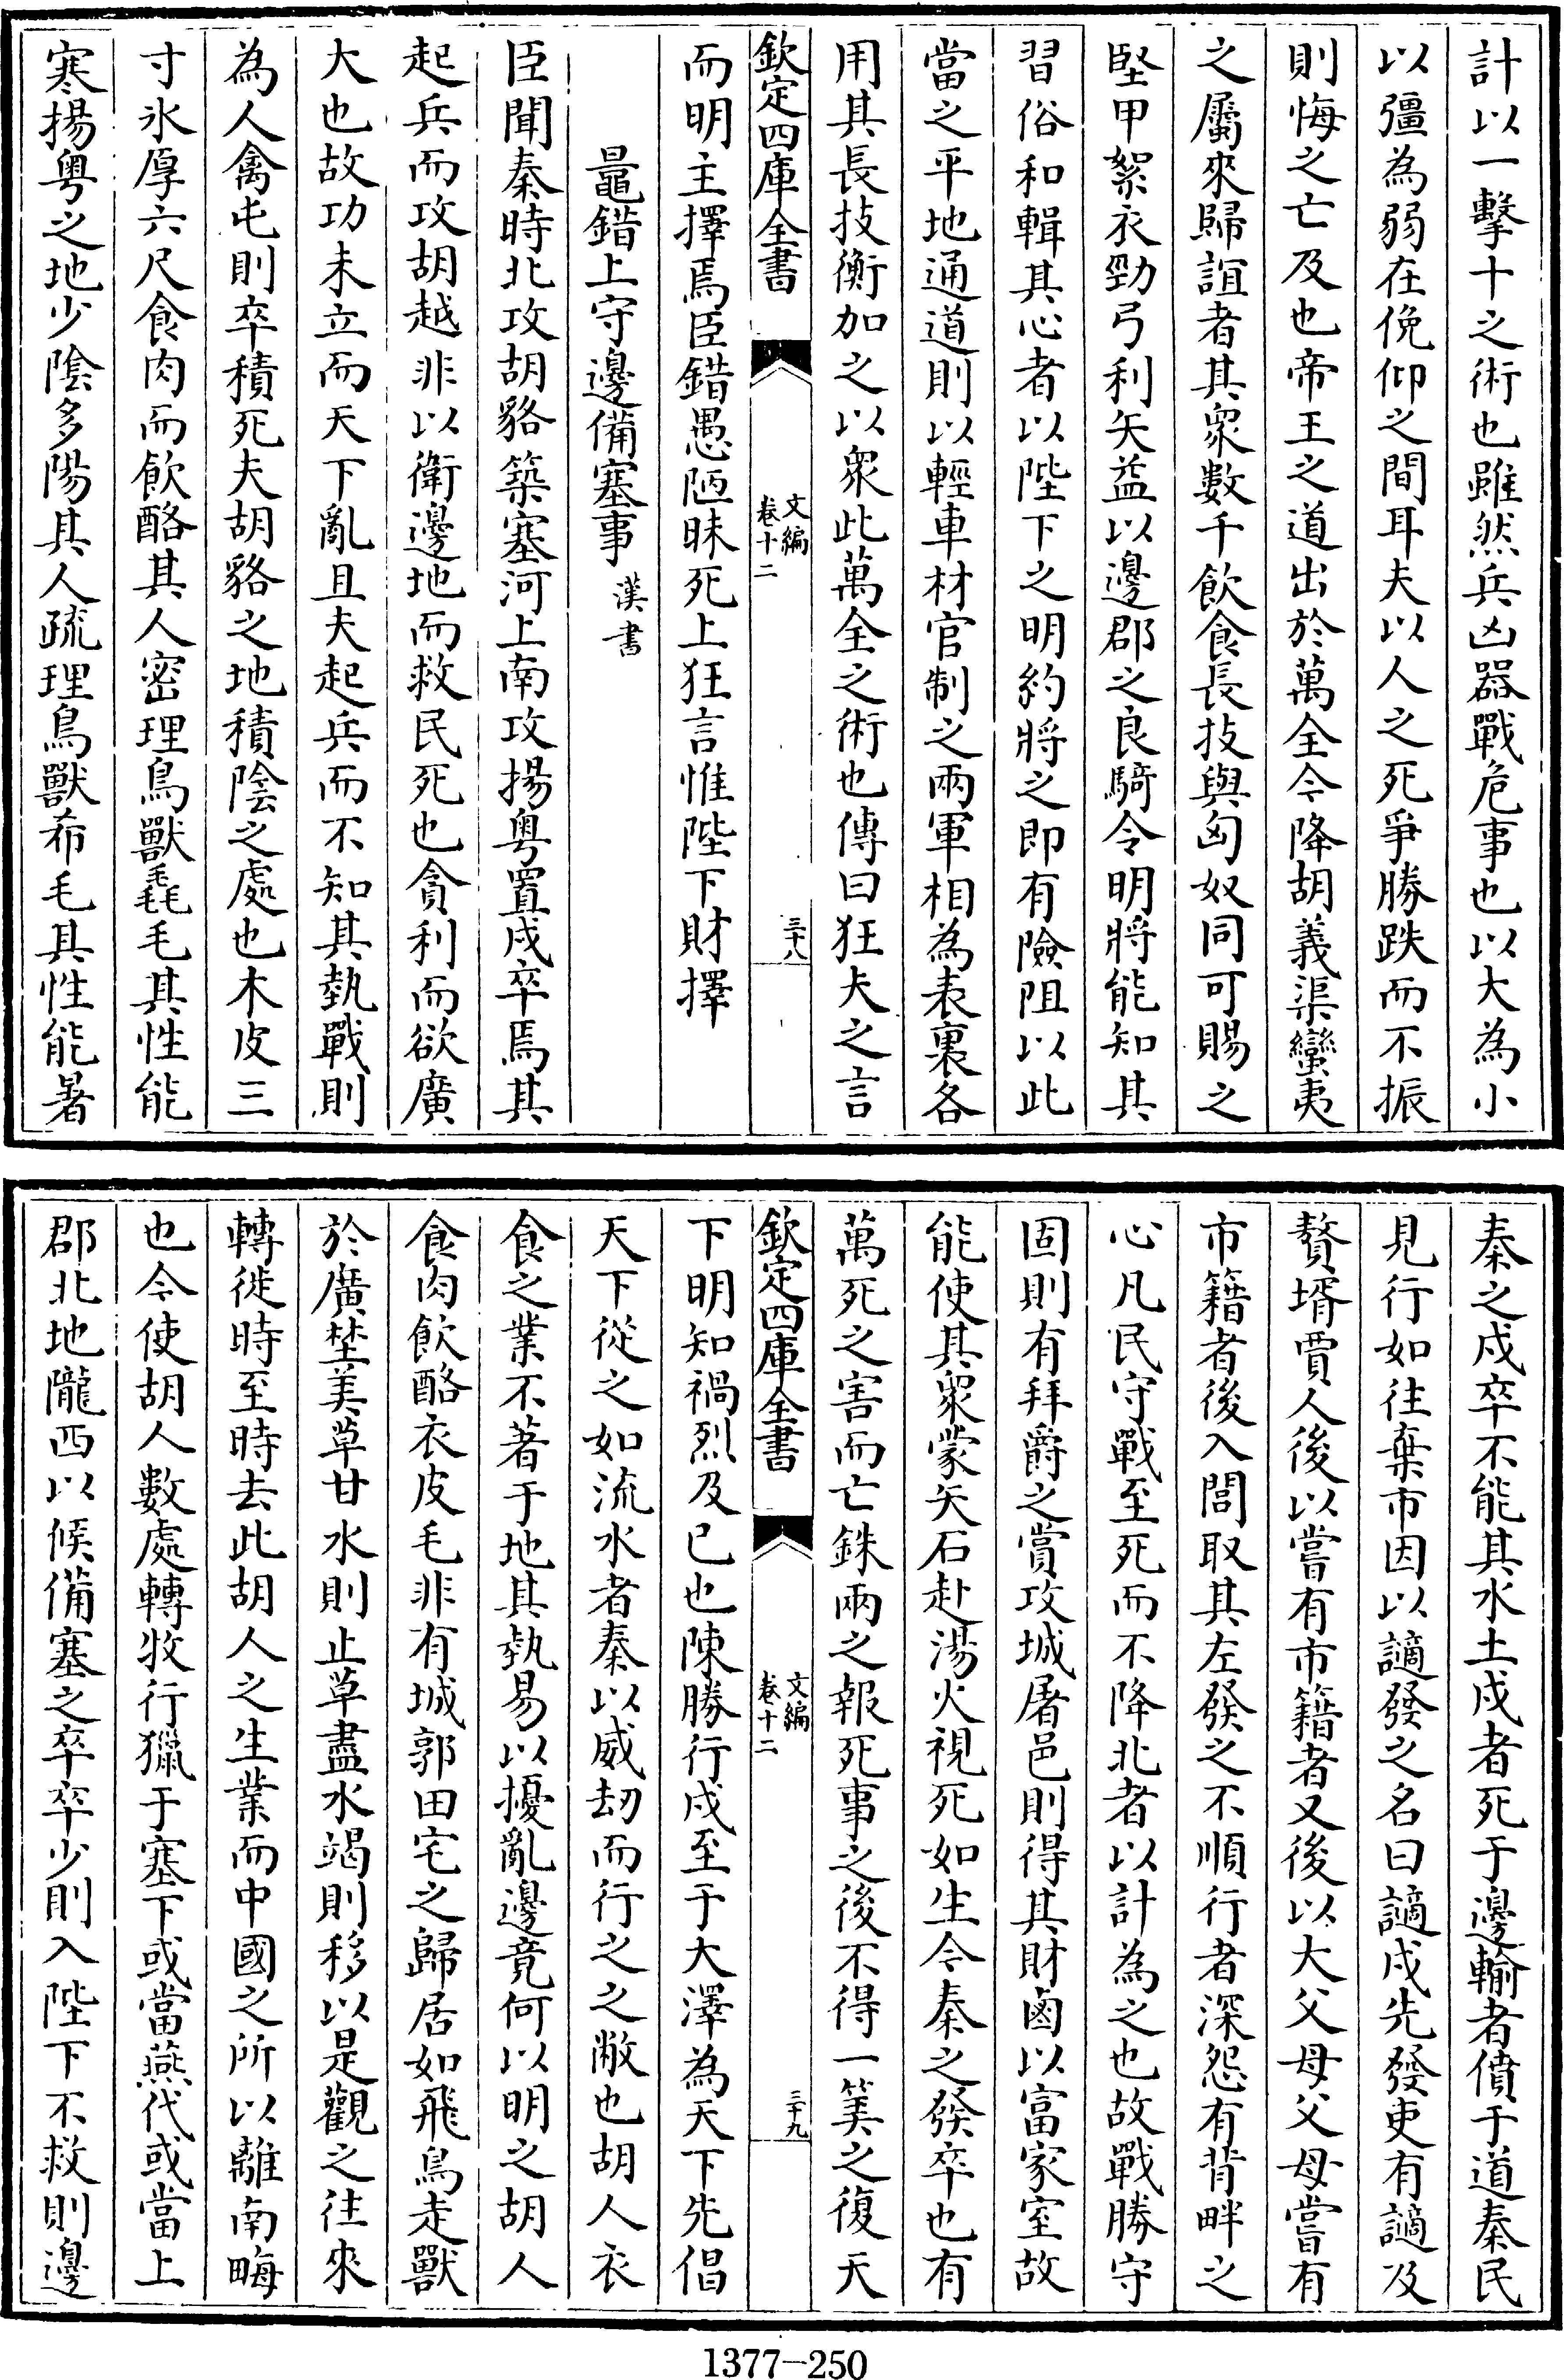 計以一擊十之術也雖然兵凶器戰危事也以大為小
以彊為弱在俛仰之間耳夫以人之死爭勝跌而不振
則悔之亡及也帝王之道出於萬全今降胡義渠蠻夷
之屬來歸誼者其衆數千飲食長技與匈奴同可賜之
堅甲絮衣勁弓利矢益以邊郡之良騎令明將能知其
習俗和輯其心者以陛下之明約將之即有險阻以此
當之平地通道則以輕車材官制之兩軍相為表裏各
用其長技衡加之以衆此萬全之術也傳曰狂夫之言
欽定四庫全書
文編
卷十二
三十八
而明主擇焉臣錯愚陋昧死上狂言惟陛下財擇
鼂錯上守邊備塞事 漢書
臣聞秦時北攻胡貉築塞河上南攻揚粵置戍卒焉其
起兵而攻胡越非以衛邊地而救民死也貪利而欲廣
大也故功未立而天下亂且夫起兵而不知其埶戰則
為人禽屯則卒積死夫胡貉之地積陰之處也木皮三
寸氷厚六尺食肉而飲酪其人密理鳥獸毳毛其性能
寒揚粤之地少陰多陽其人疏理鳥獸希毛其性能暑
秦之戍卒不能其水土戍者死于邊輸者僨于道秦民
見行如往棄市因以讁發之名曰讁戍先發吏有讁及
贅壻賈人後以嘗有市籍者又後以大父母父母嘗有
市籍者後入閭取其左發之不順行者深怨有背畔之
心凡民守戰至死而不降北者以計為之也故戰勝守
固則有拜爵之賞攻城屠邑則得其財鹵以富家室故
能使其衆蒙矢石赴湯火視死如生今秦之發卒也有
萬死之害而亡銖兩之報死事之後不得一筭之復天
欽定四庫全書
文編
卷十二
三十九
下明知禍烈及已也陳勝行戍至于大澤為天下先倡
天下從之如流水者秦以威刼而行之之敝也胡人衣
食之業不著于地其埶易以擾亂邊竟何以明之胡人
食肉飲酪衣皮毛非有城郭田宅之歸居如飛鳥走獸
於廣埜美草甘水則止草盡水竭則移以是觀之往來
轉徙時至時去此胡人之生業而中國之所以離南畮
也今使胡人數處轉牧行獵于塞下或當燕代或當上
郡北地隴西以候備塞之卒卒少則入陛下不救則邊
1377-250